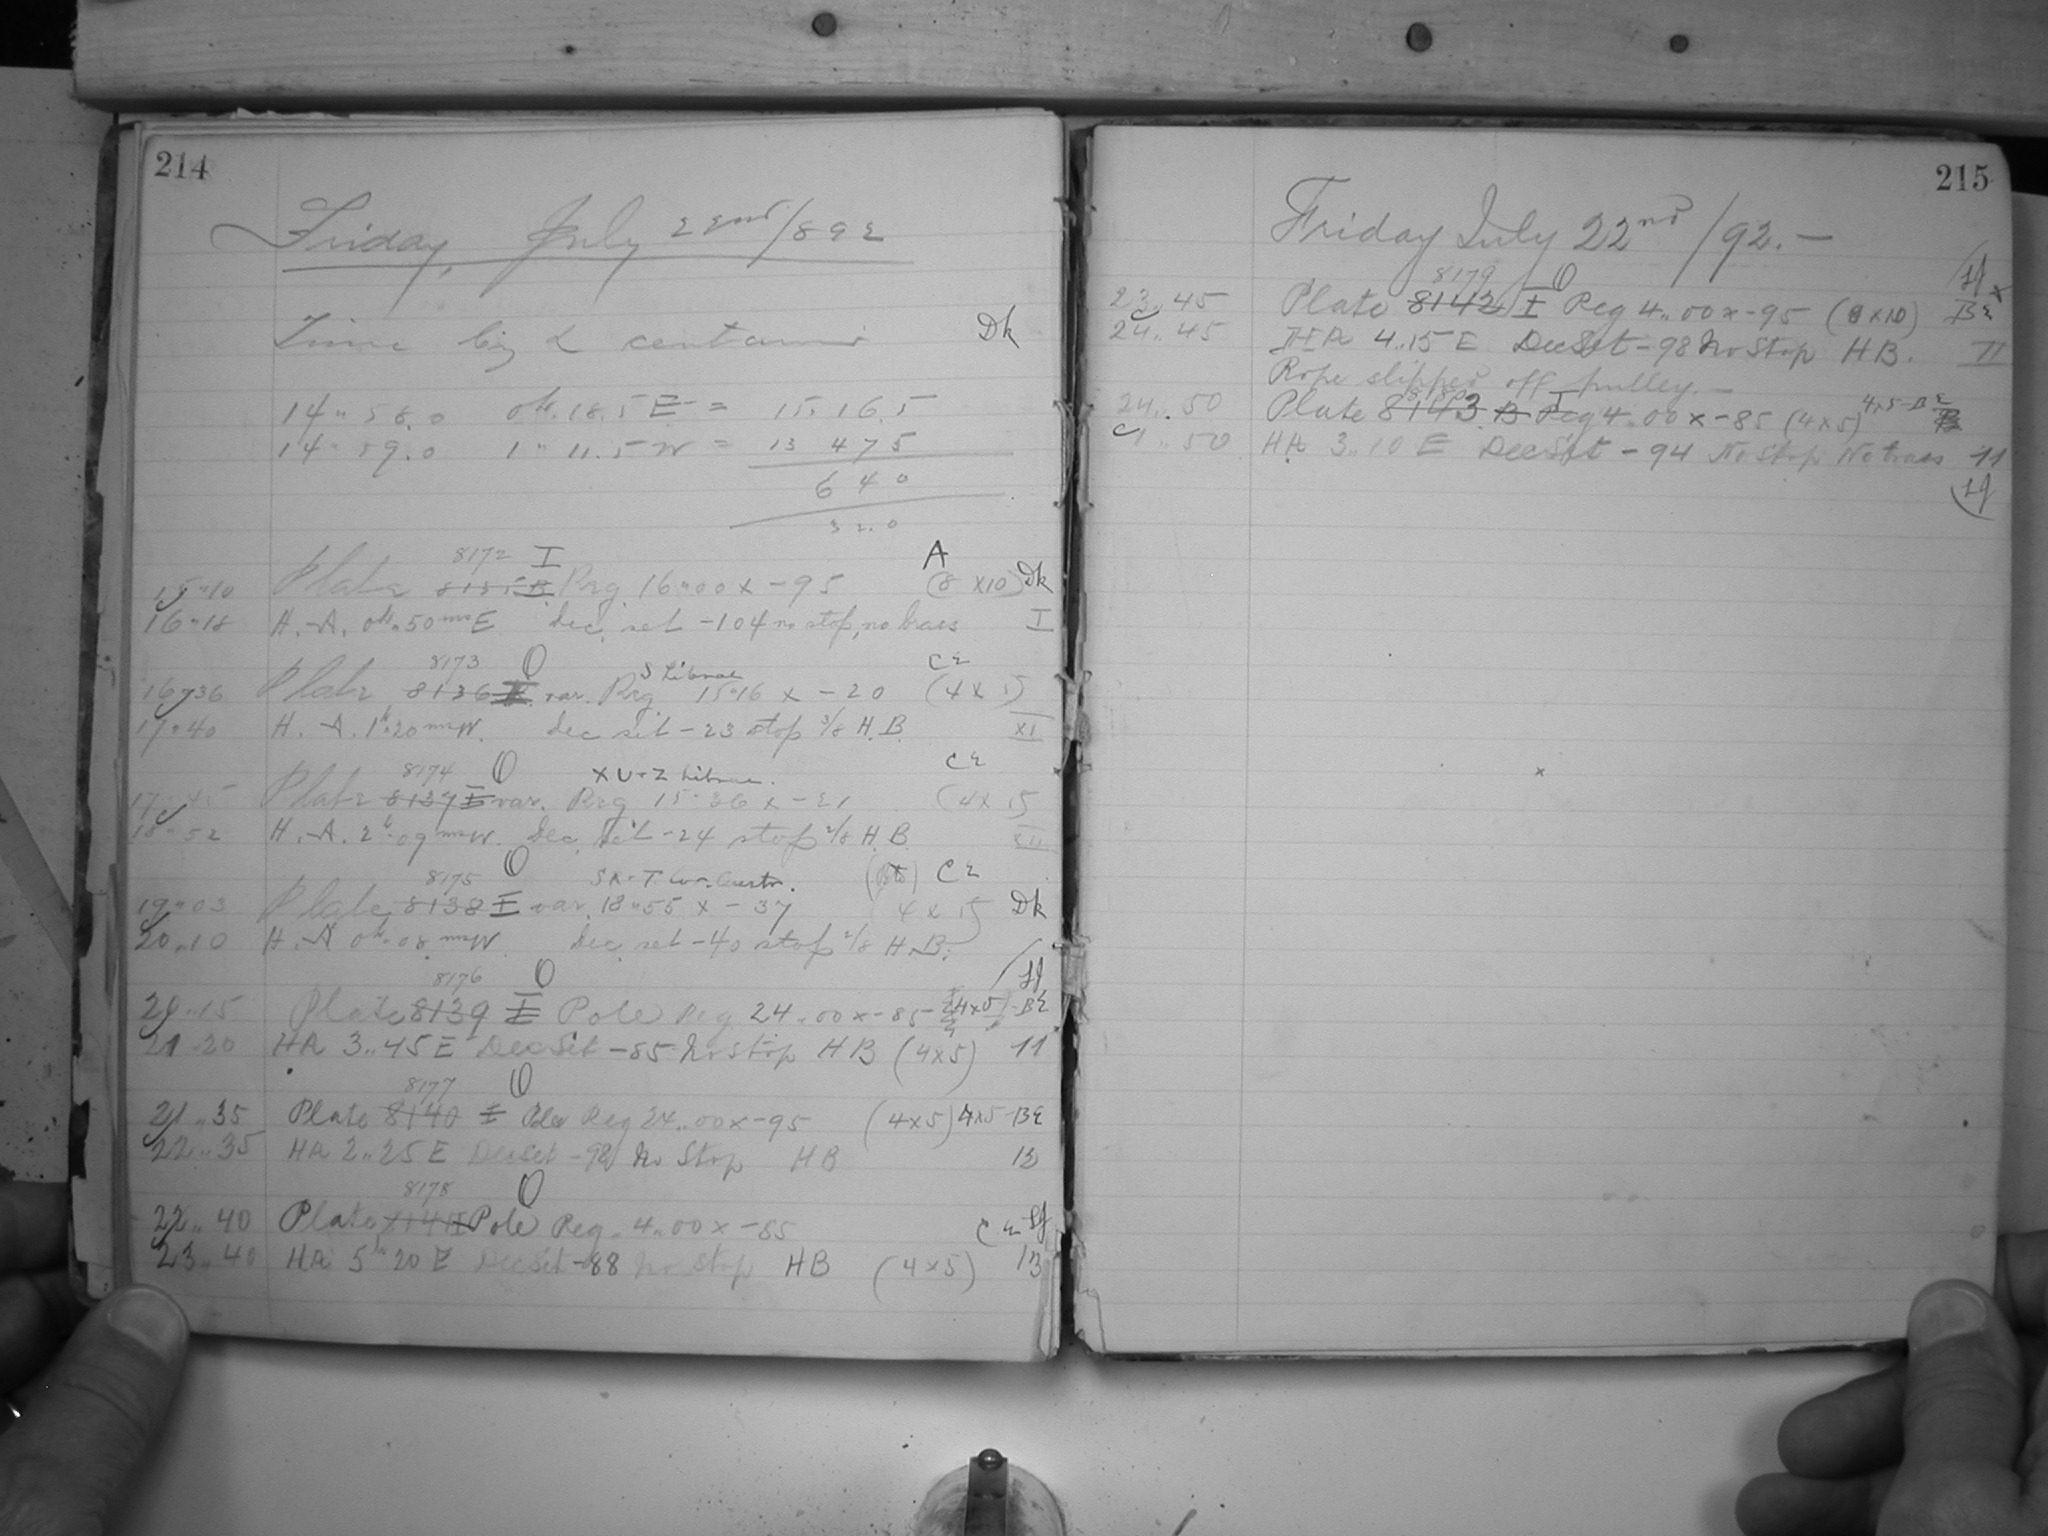 214
Friday, July 22nd/892
Time by α centauri Dk
14" 58.0 0h. 18.5 E = 15. 16. 5
14" 59.0 1" 11.5 W = 13 47 5
6 4 0
3 2. 0
8172 I A
15"10 Plate 8135 B Reg. 16"00 x -95 (8 x10) Dk
16"18 H.A. 0h"50ms E dec. set -104 no stop, no brass I
8173 O S Librae CE
16"36 Plate 8136 I var. Reg. 15"16 x -20 (4 x 5)
17"40 H.A. 1h"20ms W. dec set -23 stop 3/8 H.B. XI
8174 O X U-Z Librae. CE
17"45 Plate 8137 I var. Reg 15"36 x -21 (4x 5
18"52 H.A. 2h"09ms W. Dec. Set -24 stop 2/8 H.B. XII
8175 O CE
19"03 Plate 8138 I var. 18"55 x -37 4 x 5 Dk
20"10 H.A 0h"08ms W. dec. set -40 stop 2/8 H.B.
8176 O
20"15 Plate 8139 I Pole Reg 24"00 x -85 (4x5) -BE
21"20 HA 3"45 E Dec Set -85 No stop HB (4x5) 11
8177 O
21"35 Plate 8140 I Pole Reg 24"00 x -95 (4x5) 4x5 -BE
22"35 HA 2"25 E Dec Set -98 No Stop HB 12
8178 O
22"40 Plate 8141 I Pole Reg. 4"00 x -85 CE
23"40 HA 5h 20 E Dec Set -88 No Stop HB (4x5) 13
215
Friday July 22nd/92. —
8179 O
23"45 Plate 8142 I Reg 4"00 x -95 (8 x10) BE
24"45 HA 4"15 E Dec Set -98 No Stop HB. 11
Rope slipped off pulley. —
8180 I
24"50 Plate 8143 B Reg 4"00 x -85 (4x5) 4x5-BE
1"50 HA 3"10 E Dec Set -94 No Stop No brass 11